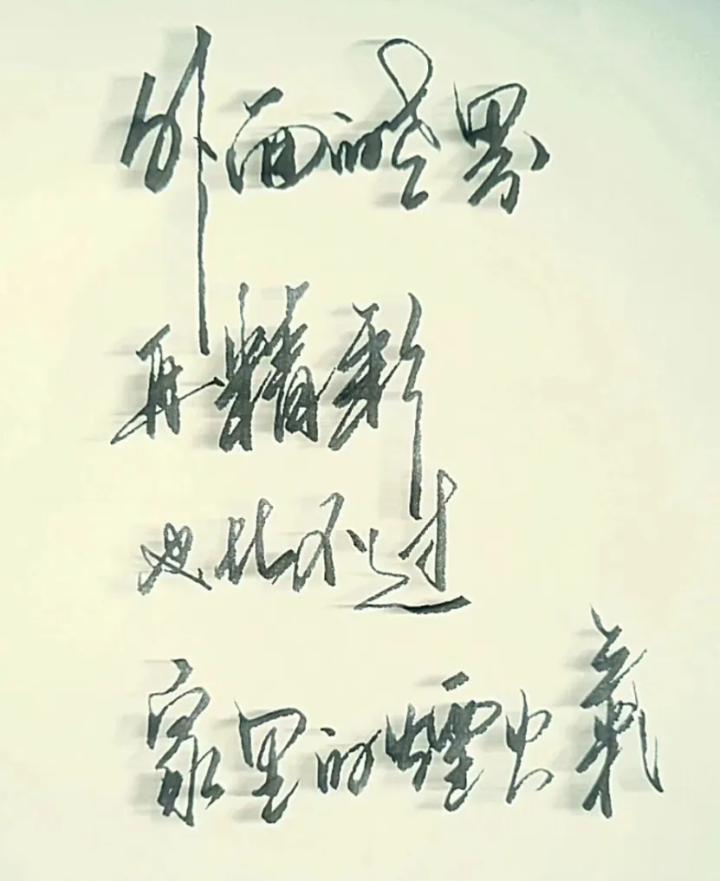 外面的世界
再精彩
也比不过
家里的煙火氣